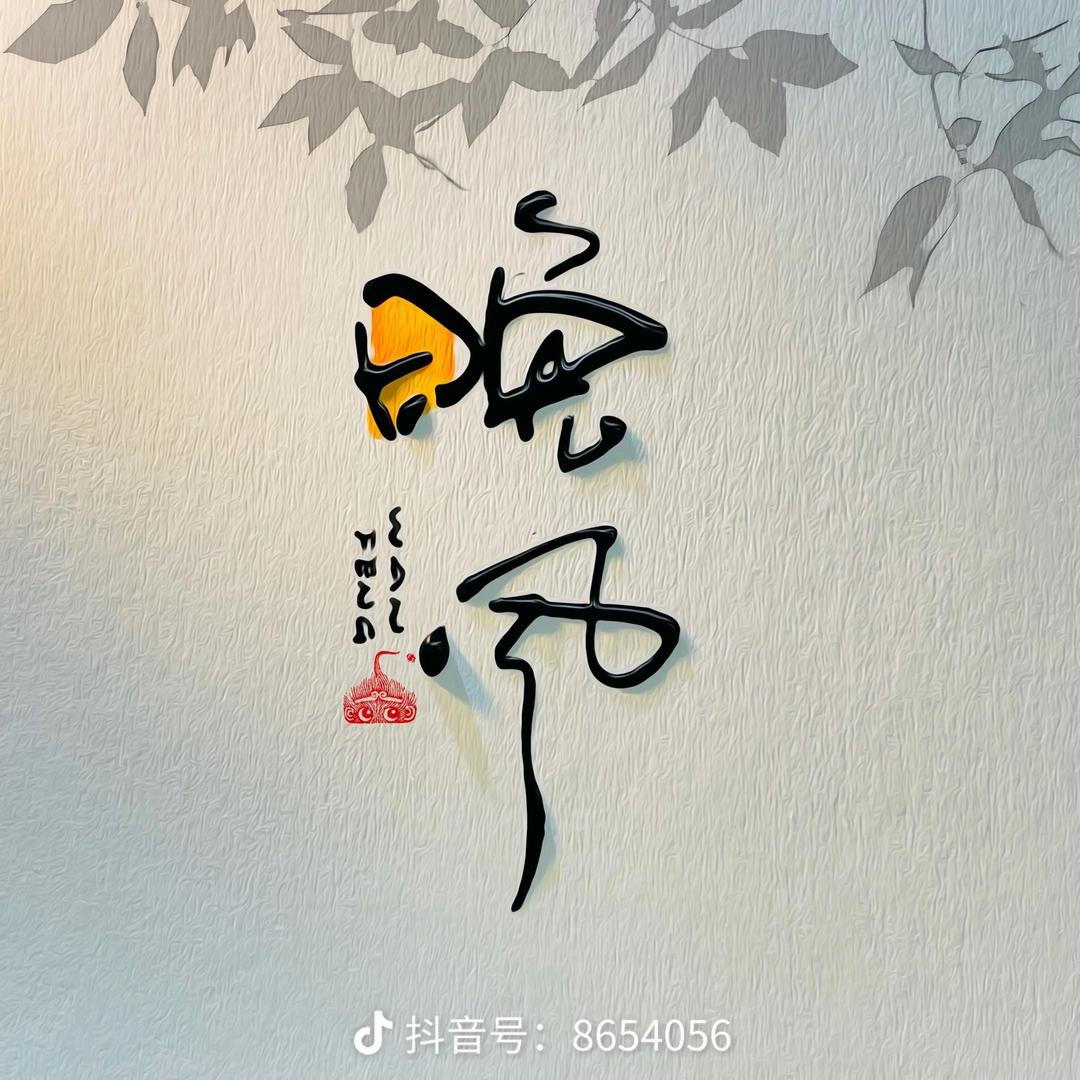 晚风
WAN
FENG
抖音号：8654056